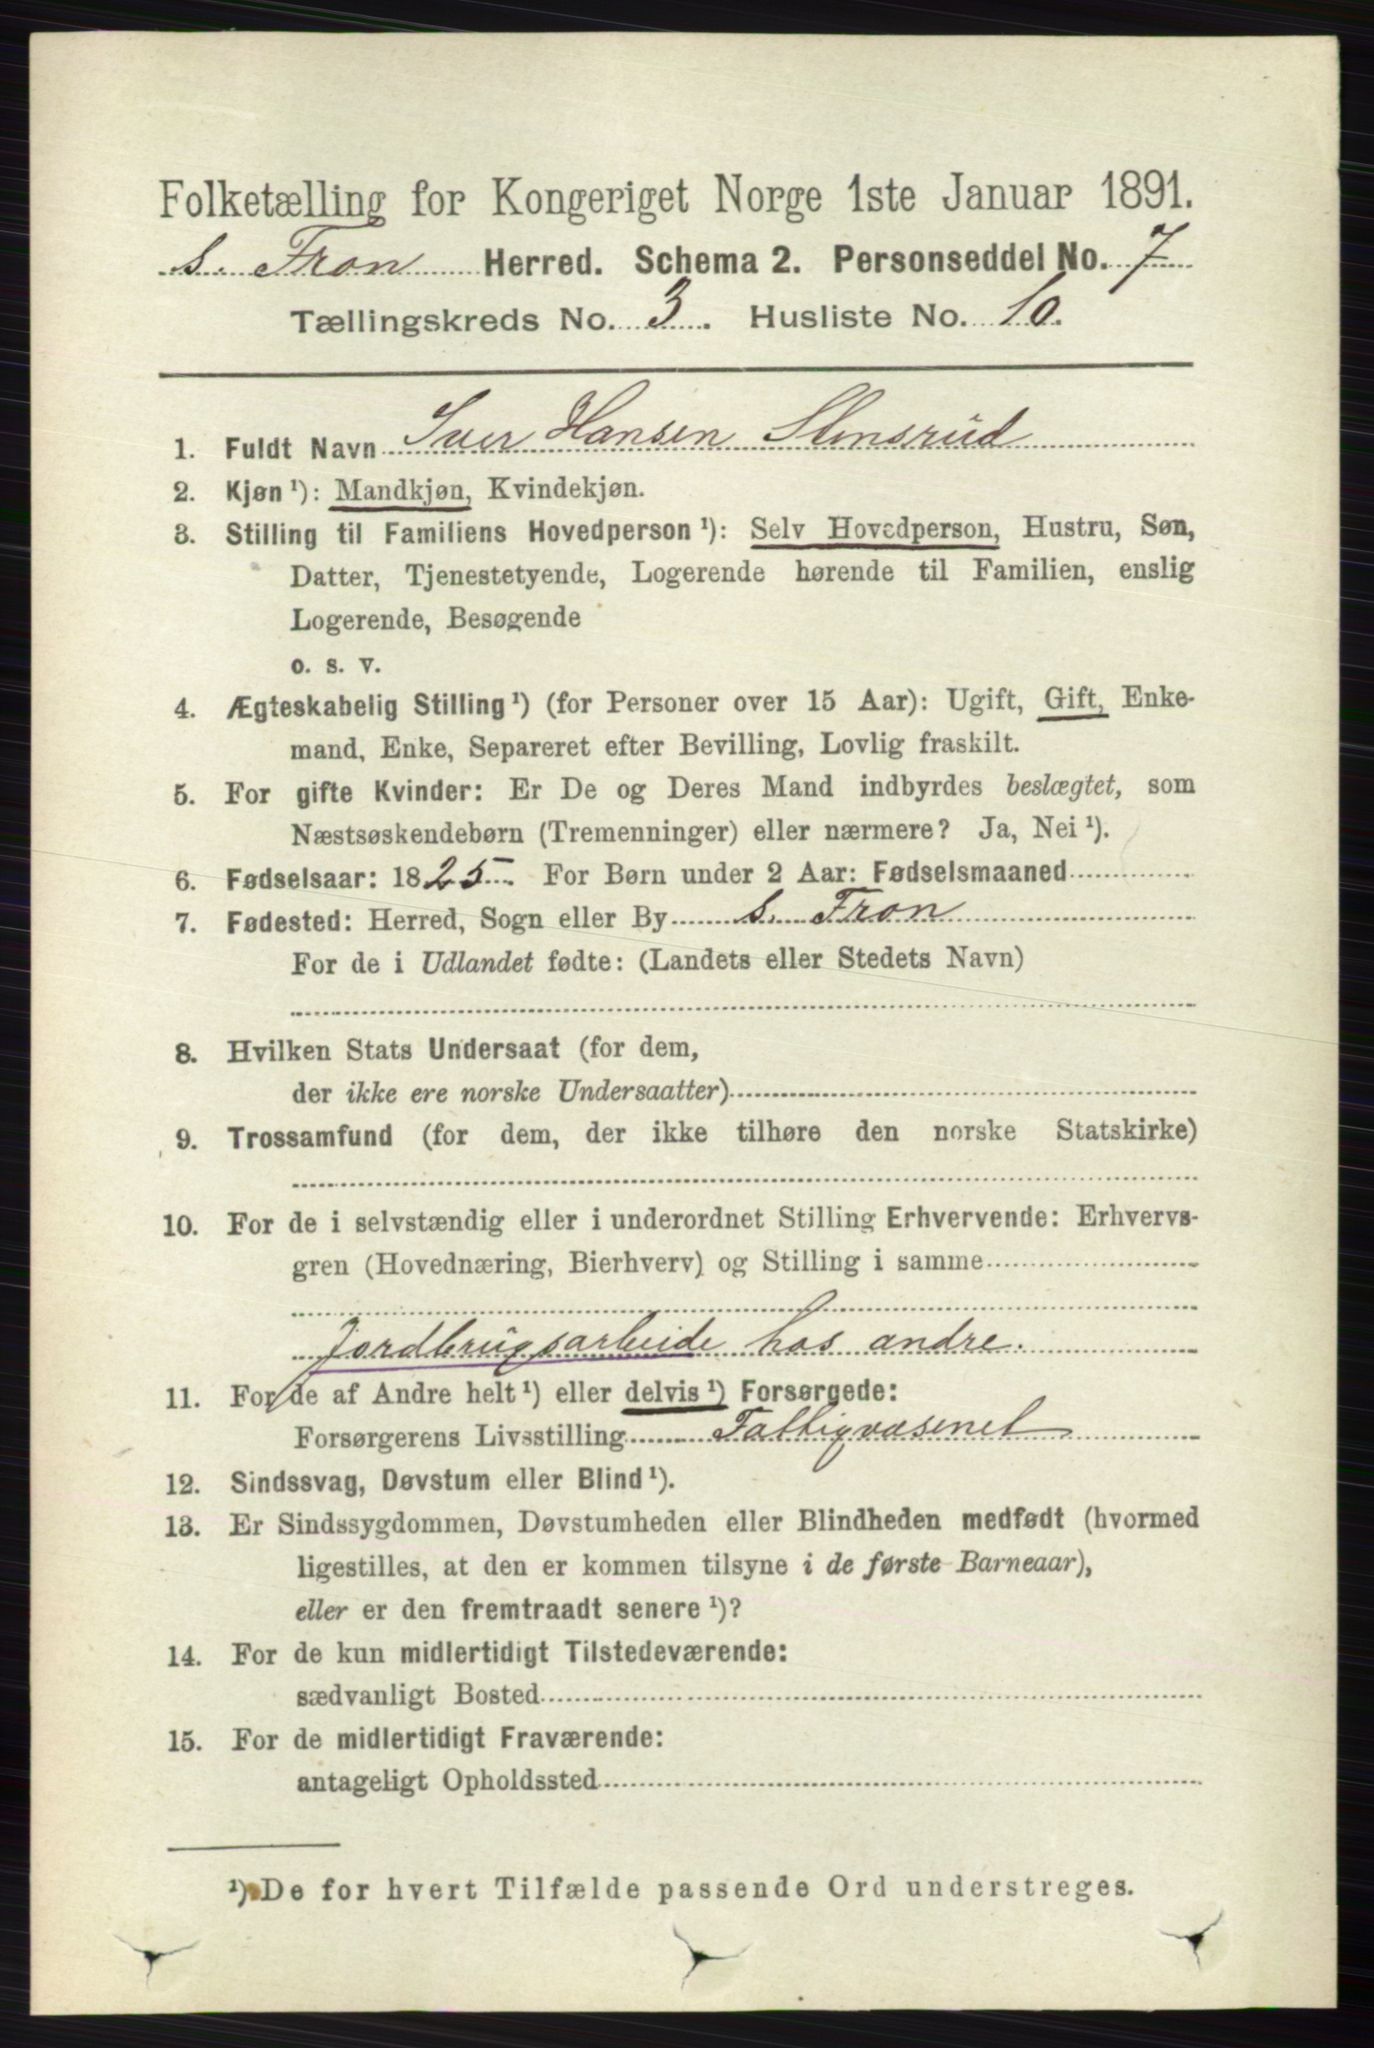 Folketælling for Kongeriget Norge 1ste Januar 1891.
s. Fron Herred. Schema 2. Personseddel No. 7
Tællingskreds No. 3. Husliste No. 10.
1. Fuldt Navn Iver Hansen Stensrud
2. Kjøn ¹): Mandkjøn, Kvindekjøn.
3. Stilling til Familiens Hovedperson ¹): Selv Hovedperson, Hustru, Søn,
Datter, Tjenestetyende, Logerende hørende til Familien, enslig
Logerende, Besøgende
o. s. v.
4. Ægteskabelig Stilling ¹) (for Personer over 15 Aar): Ugift, Gift, Enke-
mand, Enke, Separeret efter Bevilling, Lovlig fraskilt.
5. For gifte Kvinder: Er De og Deres Mand indbyrdes beslægtet, som
Næstsøskendebørn (Tremenninger) eller nærmere? Ja, Nei ¹).
6. Fødselsaar: 1825. For Børn under 2 Aar: Fødselsmaaned
7. Fødested: Herred, Sogn eller By s. Fron
For de i Udlandet fødte: (Landets eller Stedets Navn)
8. Hvilken Stats Undersaat (for dem,
der ikke ere norske Undersaatter)
9. Trossamfund (for dem, der ikke tilhøre den norske Statskirke)
10. For de i selvstændig eller i underordnet Stilling Erhvervende: Erhvervs-
gren (Hovednæring, Bierhverv) og Stilling i samme
Jordbrugsarbeide hos andre.
11. For de af Andre helt ¹) eller delvis ¹) Forsørgede:
Forsørgerens Livsstilling Fattigvæsenet
12. Sindssvag, Døvstum eller Blind ¹).
13. Er Sindssygdommen, Døvstumheden eller Blindheden medfødt (hvormed
ligestilles, at den er kommen tilsyne i de første Barneaar),
eller er den fremtraadt senere ¹)?
14. For de kun midlertidigt Tilstedeværende:
sædvanligt Bosted
15. For de midlertidigt Fraværende:
antageligt Opholdssted
¹) De for hvert Tilfælde passende Ord understreges.